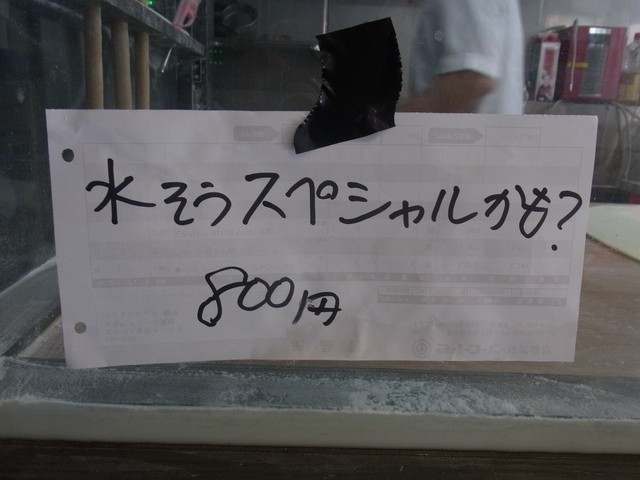 水そうスペシャルかも?
800円